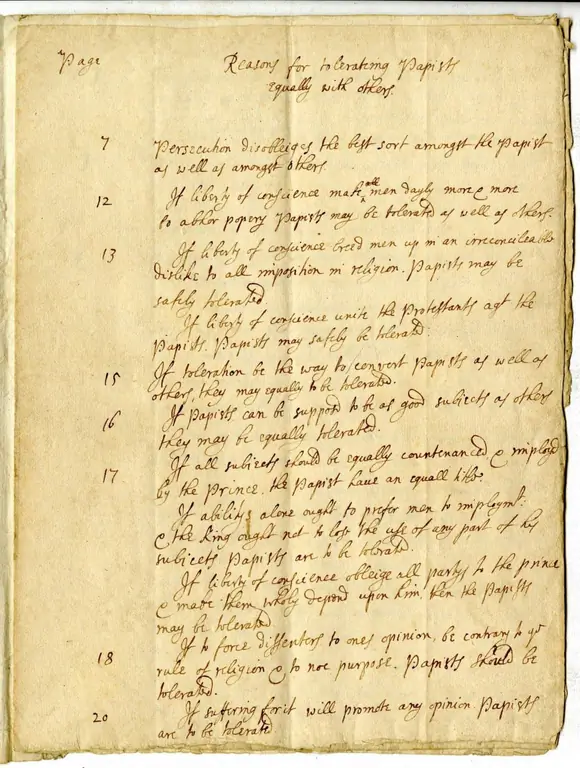 Page Reasons for tolerateing Papists
equally with others.
7 Persecution disobleiges the best sort amongst the Papist
as well as amongst others.
12 If liberty of conscience make all men dayly more & more
to abhor popery Papists may be tolerated as well as others.
13 If liberty of conscience breed men up in an irreconcileable
dislike to all imposition in religion. Papists may be
safely tolerated.
If liberty of conscience unite the Protestants agt the
Papists, Papists may safely be tolerated.
15 If toleration be the way to convert Papists as well as
others, they may equally to be tolerated.
16 If Papists can be supposd to be as good subjects as others
they may be equally tolerated.
17 If all subjects should be equally countenanced & imployd
by the Prince. the Papist have an equall title.
If abilitys alone ought to prefer men to imploymt:
& the King ought not to loss the use of any part of his
subjects Papists are to be tolerated.
If liberty of conscience obleige all partys to the prince
& make them wholy depend upon him, then the Papists
may be tolerated
18 If to force dissenters to ones opinion, be contrary to ye
rule of religion & to noe purpose. Papists should be
tolerated.
20 If suffering for it will promote any opinion Papists
are to be tolerated